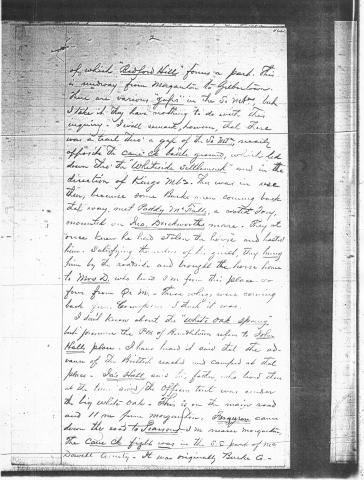 of which "Bedford Hill" forms a part. This
is midway from Morganton to Gilberttown.
There are various "gaps" in the So. Mts, but
I take it they have nothing to do with this
inquiry - I will remark, however, that there
was a trail thro' a gap of the So Mts, nearly
opposite the Cane Ck battle ground, which led
down thro' the Whiteside Settlement and in the
direction of Kings Mtn. This was in use
then, because some Burke men coming back
that way, met Paddy McFall, a noted Tory,
mounted on Jno. Duckworths mare - they at
once knew he had stolen the horse and halted
him. Satisfying themselves of his guilt, they hung
him by the roadside and brought the horse home
to Mrs D. who lived 3 m from this place or
four from Qr. M. - These who were coming
back from Cowpens I think it was.
I don't know about the "White Oak spring"
but presume the Pm of Rutherford refers to John
Hall's place. I have heard it said that the ad-
vance of the British reached and camped at that
place - Jas Hall, and his father who lived there
at the time said, the Officers tent was under
the big white oak. This is on the main road
and 11 m from Morganton. Ferguson came
down the road to Pearson's 2 m nearer Morganton
the Cane Ck fight was in the S.E part of Mc
Dowell County - It was originally Burke Co -